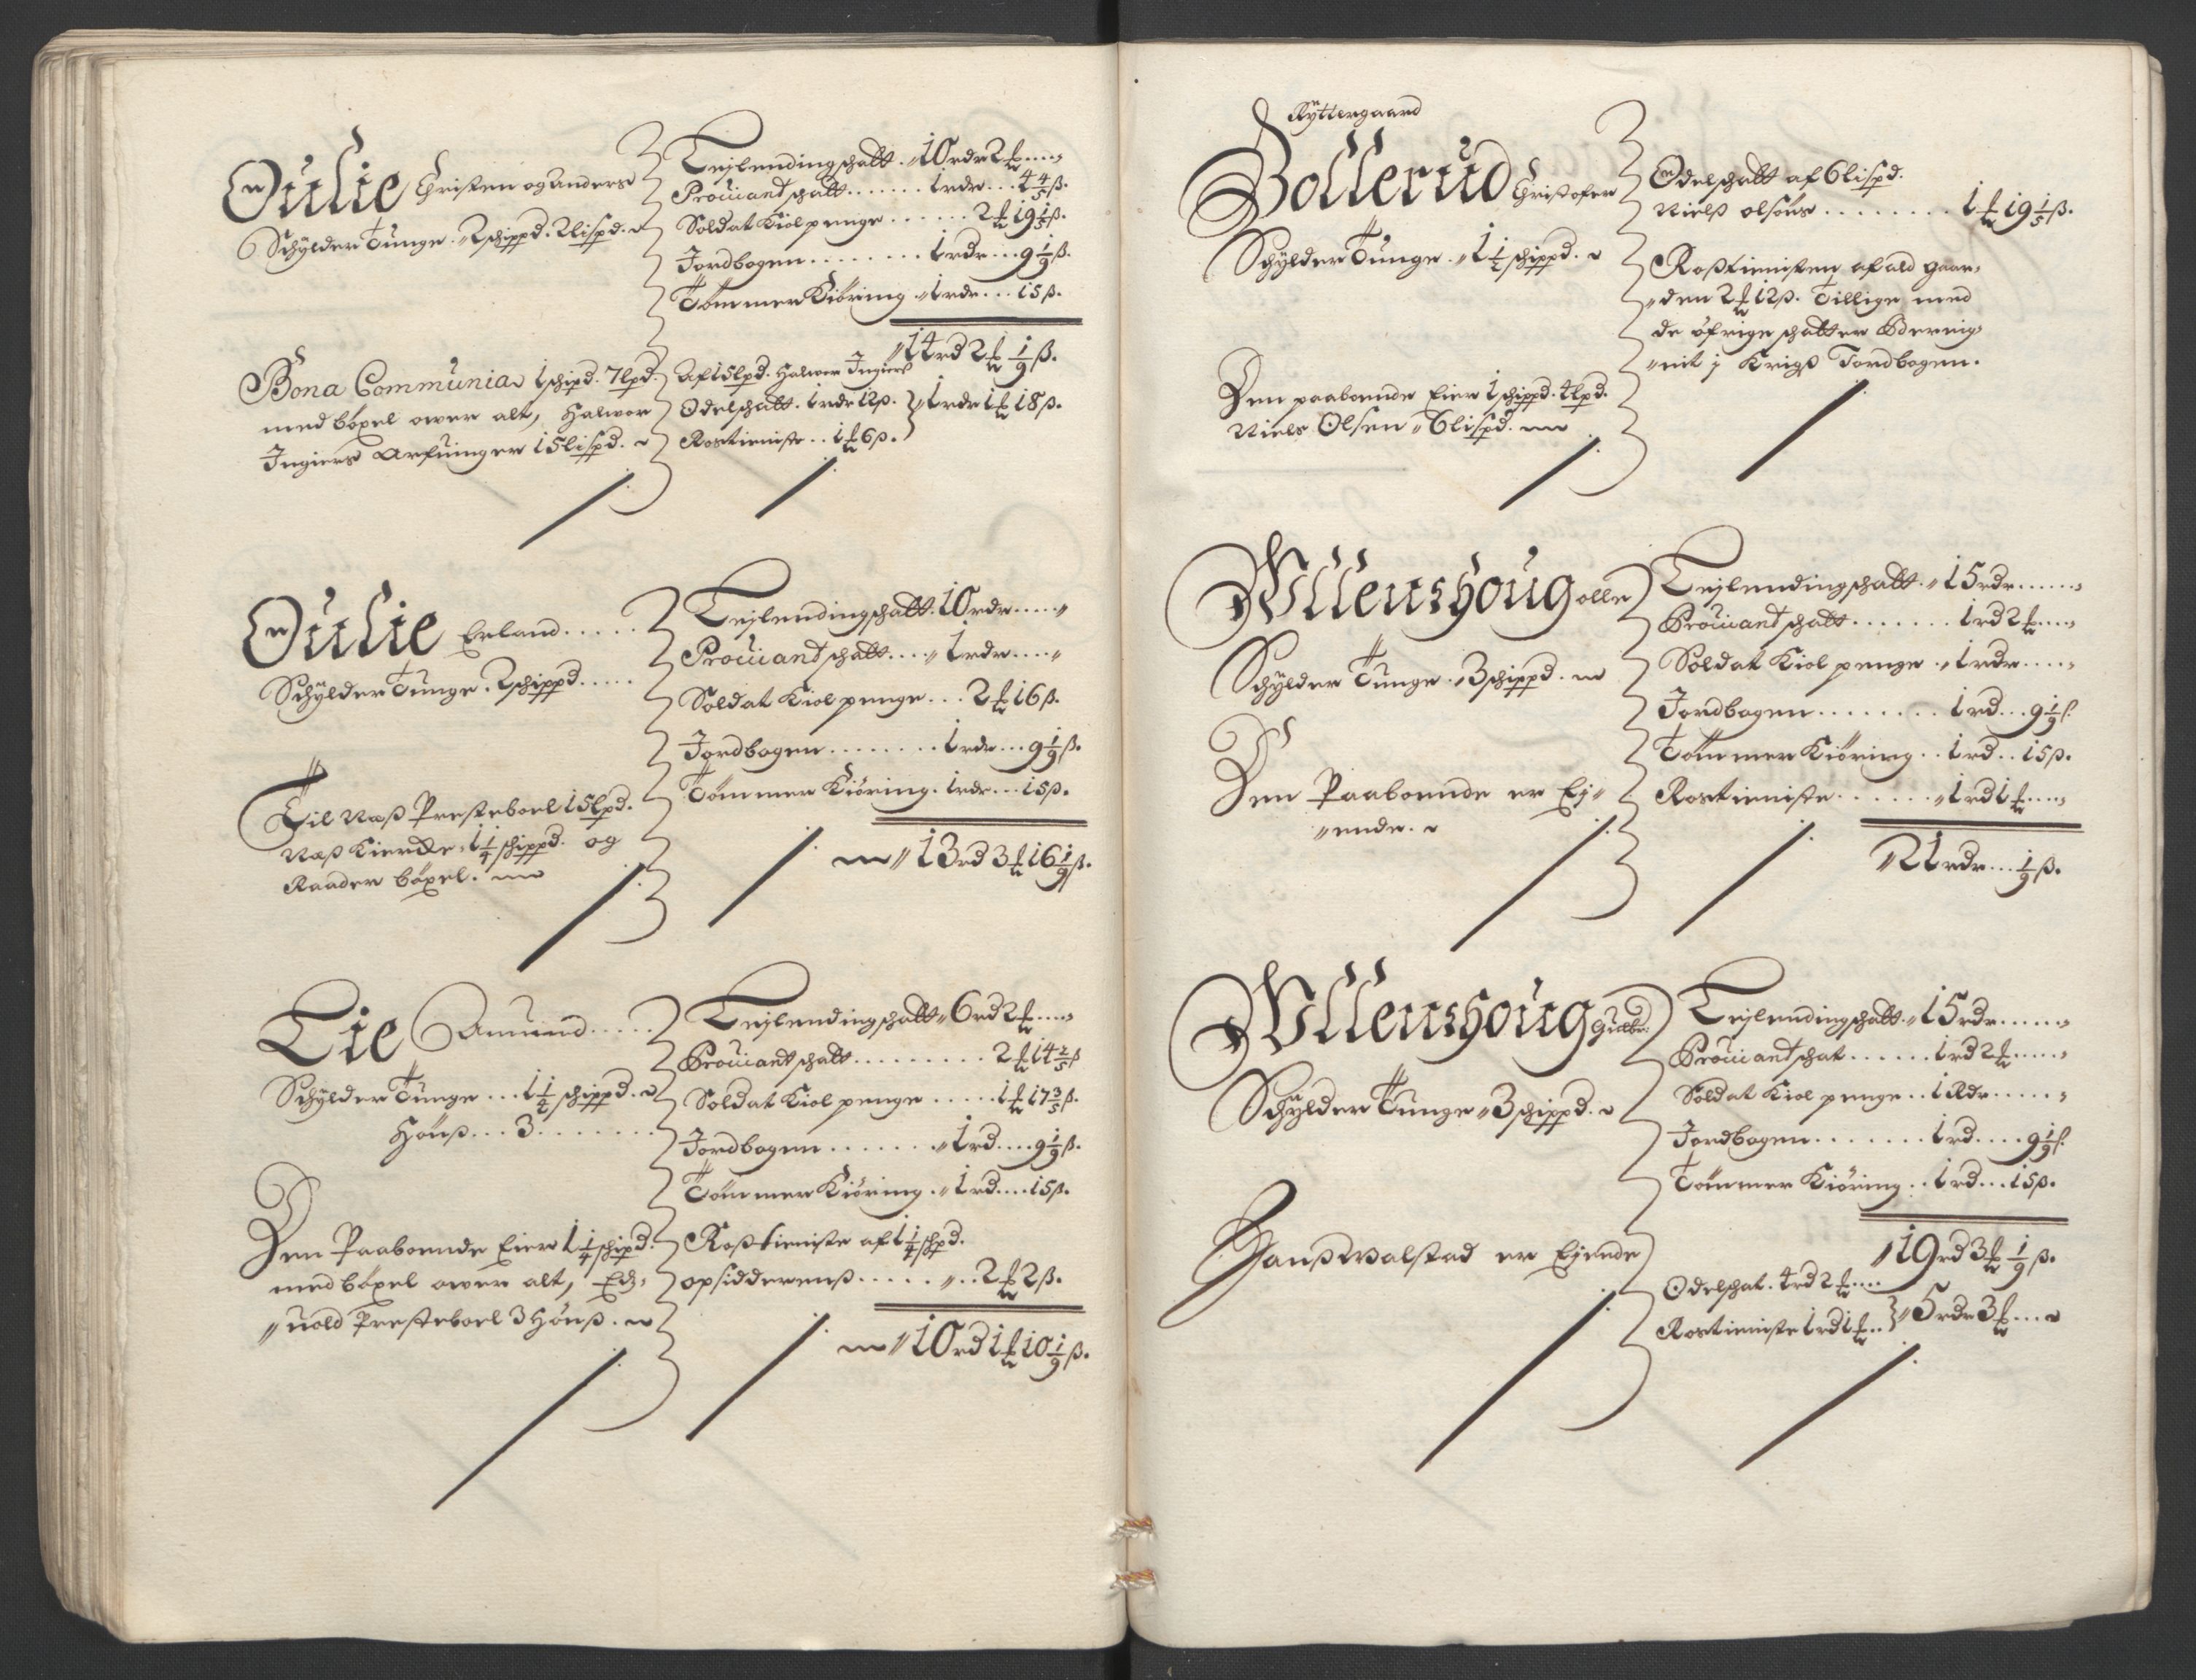 Oulie Christen og Anders
Schylder Tunge 2 schippd. 2 lispd.
Bona Communia 1 schipd. 7 lpd.
med böxel ower alt, Halwor
Ingiers Arfuinger 15 lispd.
Tejlendingschatt 10 rdr 2 ℔
Prouiantschatt 1 rdr 4 4/5 ß.
Soldat Kiol penge 2 ℔ 19 1/5 ß.
Jordbogen 1 rdr 9 1/9 ß.
Tömmer Kiöring 1 rdr 15 ß.
14 rd 2 ℔ 1/9 ß.
Af 15 lpd. Halwor Ingiers
Odelschatt. 1 rdr 12 ß. } 1 rdr 1 ℔ 18 ß.
Rostieniste 1 ℔ 6 ß.
Oulie Erland
Schylder Tunge 2 schippd
Til Næß Presteboel 15 lpd.
Næß Kiercke 1 1/4 schippd. og
Raader böxel.
Tejlendingschatt 10 rdr
Prouiantschatt 1 rdr
Soldat Kiol penge 2 ℔ 16 ß.
Jordbogen 1 rdr 9 1/9 ß.
Tömmer Kiöring 1 rdr 15 ß.
13 rd 3 ℔ 16 1/9 ß.
Lie Amund
Schylder Tunge 1 1/2 schippd.
Hönß 3
Den Paaboende Eier 1 1/4 schipd.
med böxel ower alt, Edz-
uold Presteboel 3 Hönß.
Tejlendingschatt 6 rd 2 ℔
Prouiantschatt 2 ℔ 14 2/5 ß
Soldat Kiol penge 1 ℔ 17 3/5 ß.
Jordbogen 1 rd 9 1/9 ß.
Tömmer Kiöring 1 rd 15 ß.
Roßtieniste af 1 1/4 schpd.
opsidderenß 2 ℔ 2 ß.
10 rd 1 ℔ 10 1/9 ß.
Ryttergaard
Bollerud Christofer
Schylder Tunge 1 1/2 schippd.
Den paaboende Eier 1 schippd. 4 lpd.
Niels Olsen 6 lispd.
Odelschatt af 6 lispd.
Nielß olsönß 1 ℔ 19 1/5 ß.
Roßtienisten af ald gaar-
den 2 ℔ 12 ß. Tillige med
de öfrige schatter
j Krigß Jordbogen.
Wllenshoug olle
Schylder Tunge 3 schippd.
Den Paaboende er Ej-
ende.
Tejlendingschatt 15 rdr
Prouiantschatt 1 rd 2 ℔
Soldat Kiol penge 1 rdr
Jordbogen 1 rd 9 1/9 ß
Tömmer Kiöring 1 rd 15 ß.
Rostieniste 1 rd 1 ℔
21 rdr 1/9 ß.
Wllenshoug Gulbr:
Schylder Tunge 3 schippd.
Hanß Walstad er Ejende
Tejlendingschatt 15 rdr
Prouiantschat 1 rd 2 ℔
Soldat Kiol penge 1 Rdr
Jordbogen 1 rd 9 1/9 ß
Tömmer Kiöring 1 rd 15 ß.
19 rd 3 ℔ 1/9 ß.
Odelschat. 4 rd 2 ℔
Rostieniste 1 rd 1 ℔ } 5 rdr 3 ℔